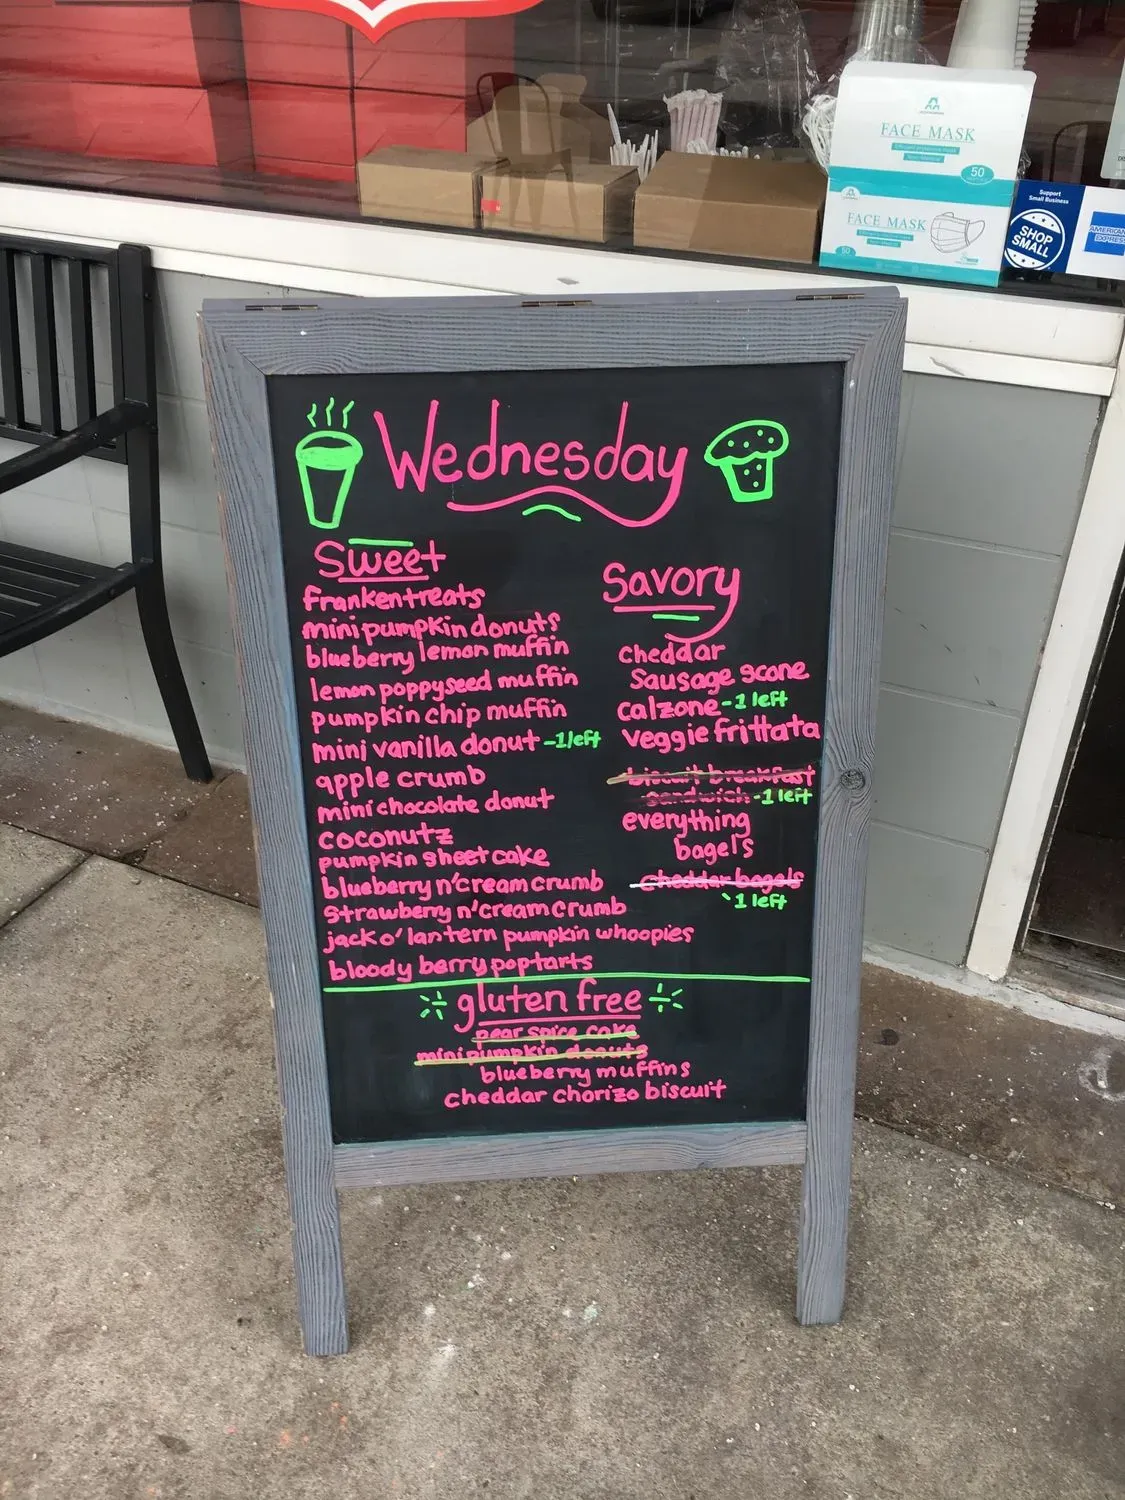 FACE MASK
50
FACE MASK
50
Support
Small Business
SHOP
SMALL
AMERICAN
EXPRESS
Wednesday
Sweet
frankentreats
mini pumpkin donuts
blueberry lemon muffin
lemon poppyseed muffin
pumpkin chip muffin
mini vanilla donut -1 left
apple crumb
mini chocolate donut
coconutz
pumpkin sheet cake
blueberry n'cream crumb
strawberry n'cream crumb
jack o' lantern pumpkin whoopies
bloody berry poptarts
Savory
cheddar
sausage scone
calzone -1 left
veggie frittata
biscuit breakfast
sandwich -1 left
everything
bagels
cheddar bagels
1 left
gluten free
pear spice cake
mini pumpkin donuts
blueberry muffins
cheddar chorizo biscuit